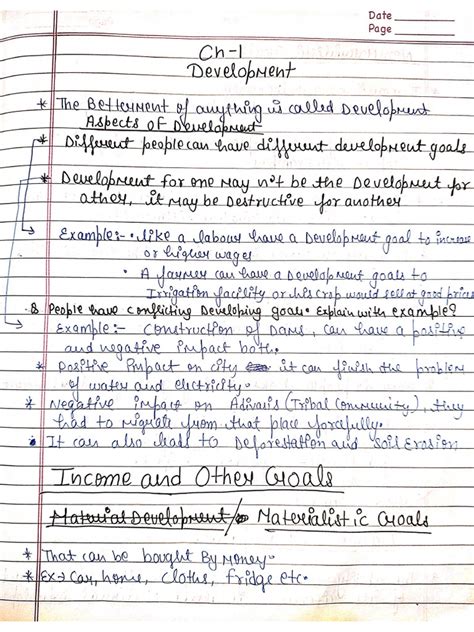 Date
Page
Ch-1
Development
* The Betterment of anything is called Development
Aspects of Development
* Different people can have different development goals
* Development for one may not be the Development for
other, it may be Destructive for another
Example:- • Like a labour have a Development goal to increase
or higher wages
• A farmer can have a Development goals to
Irrigation facility or his crop would sell at good prices
Q People have conflicting Developing goals. Explain with example?
Example:- Construction of Dams, can have a positive
and negative impact both.
* Positive Impact on city it can finish the problem
of water and electricity.
* Negative impact on Adivasis (Tribal Community), they
had to migrate from that place forcefully.
• It can also leads to Deforestation and Soil Erosion
Income and Other Goals
Material Development/ Materialistic Goals
* That can be bought By Money.
* Ex→ Car, home, cloths, fridge etc.